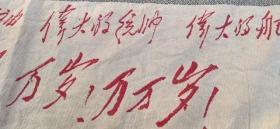 动 伟大的统帅 伟大的舵
万岁!万万岁!